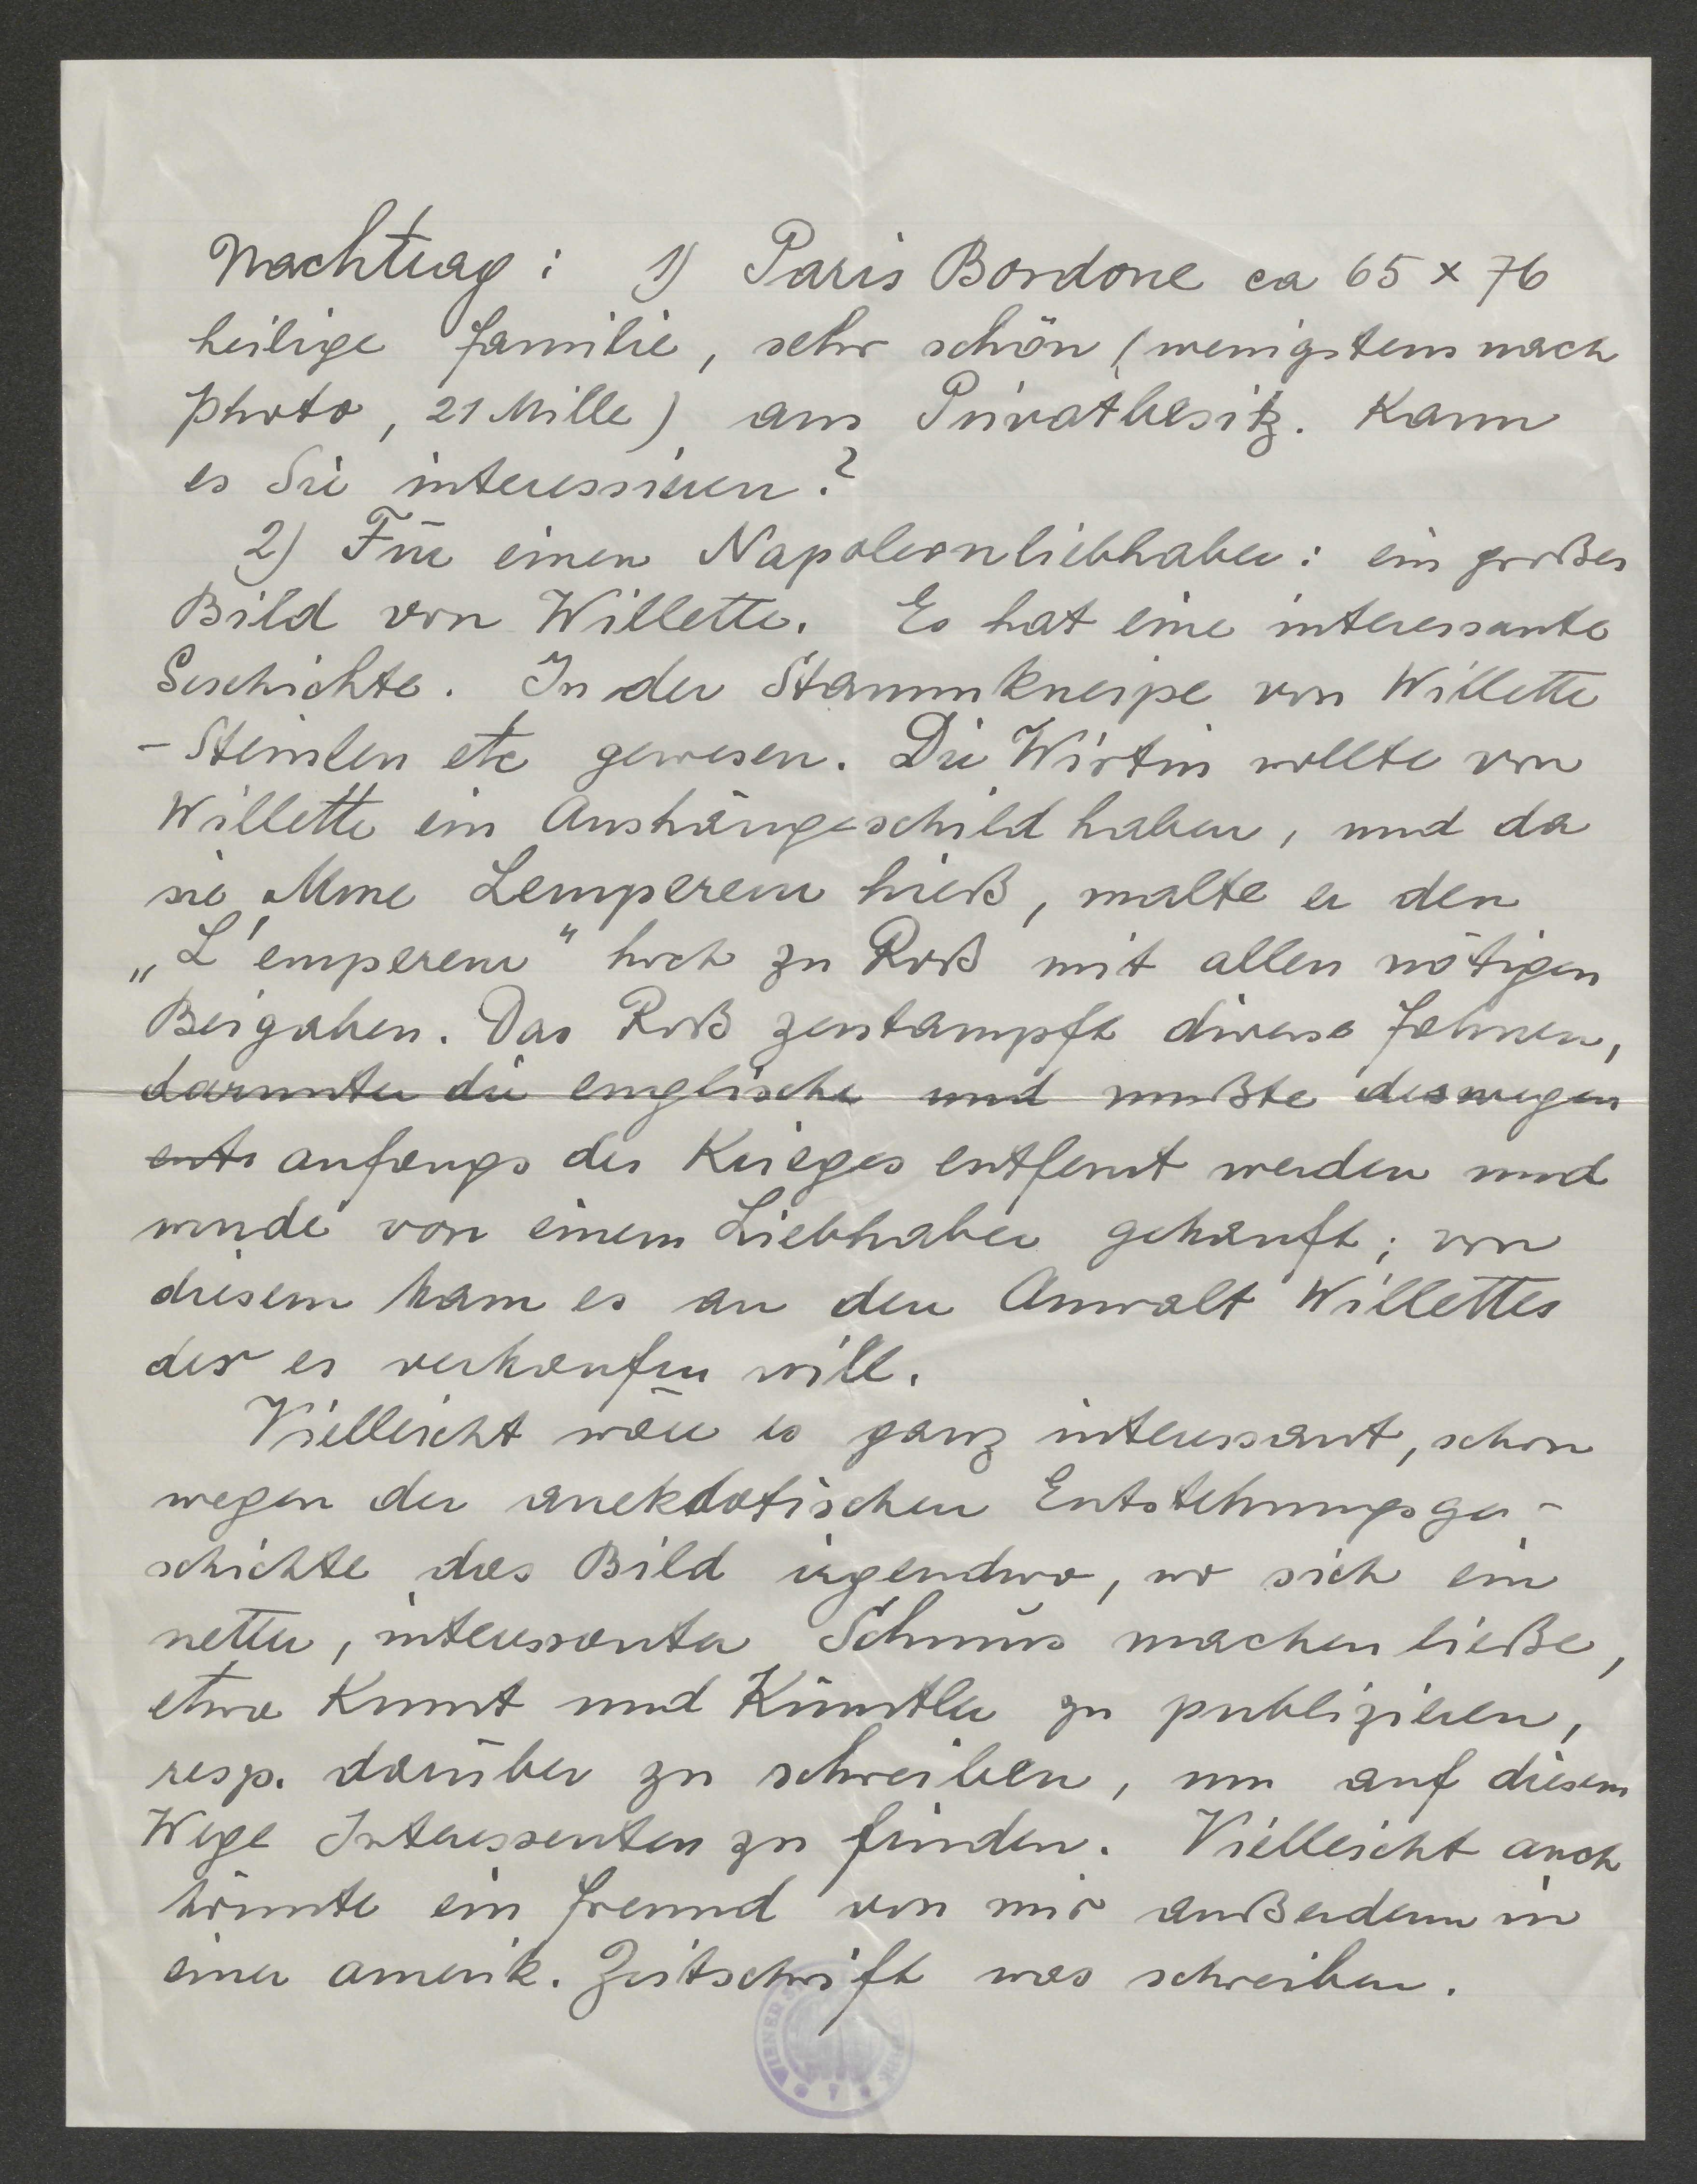 Nachtrag: 1) Paris Bordone ca 65 x 76
heilige Familie, sehr schön (wenigstens nach
Photo, 21 Mille) aus Privatbesitz. Kann
es Sie interessieren?
2) Für einen Napoleonliebhaber: ein großes
Bild von Willette. Es hat eine interessante
Geschichte. In der Stammkneipe von Willette
- Steinlen etc gewesen. Die Wirtin wollte von
Willette ein Aushängeschild haben, und da
sie Mme Lempereur hieß, malte er den
„L'empereur“ hoch zu Roß mit allen nötigen
Beigaben. Das Roß zerstampft diverse Fahnen,
darunter die englische und mußte deswegen
ents anfangs des Krieges entfernt werden und
wurde von einem Liebhaber gekauft; von
diesem kam es an den Anwalt Willettes
der es verkaufen will.
Vielleicht wäre es ganz interessant, schon
wegen der anekdotischen Entstehungsge-
schichte das Bild irgendwo, wo sich ein
netter, interessanter Schmus machen ließe,
etwa Kunst und Künstler zu publizieren,
resp. darüber zu schreiben, um auf diesem
Wege Interessenten zu finden. Vielleicht auch
könnte ein Freund von mir außerdem in
einer amerik. Zeitschrift was schreiben.
WIENER